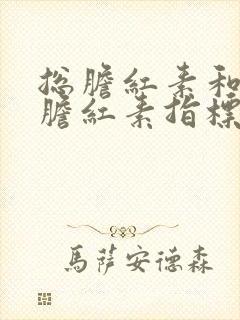 总膽紅素和
膽紅素指標
馬萨安德森